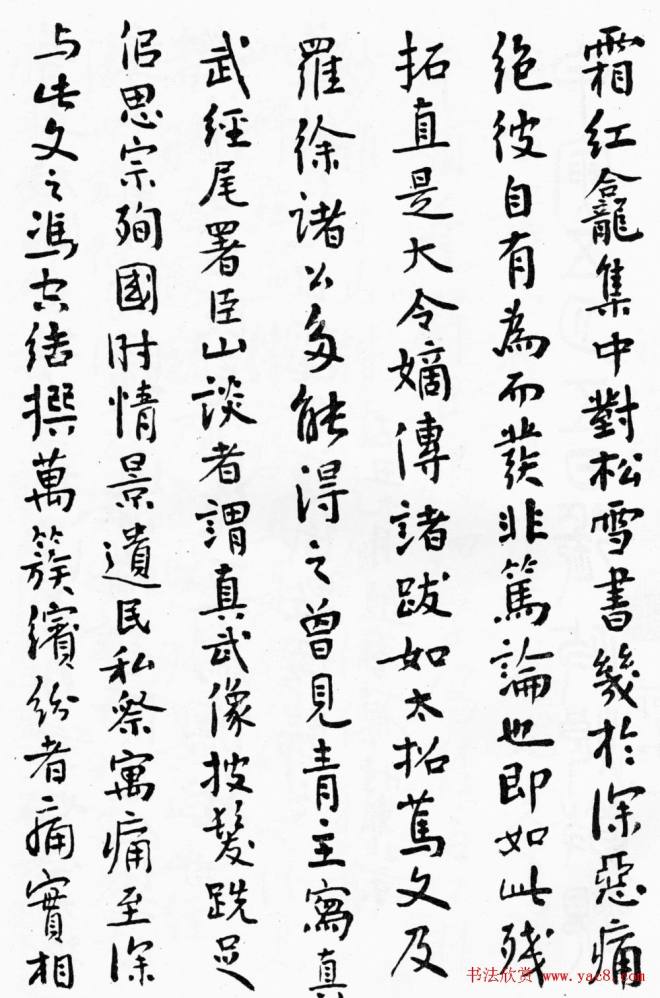 霜紅龕集中對松雪書幾於深惡痛
绝彼自有為而發非篤論也即如此残
拓直是大令嫡傳諸跋如太拓蔦文及
羅徐諸公多能得之曾見青主寫真
武經尾署臣山談者謂真武像披髮跣足
侣思宗殉國时情景遺民私祭寓痛至深
与此文之馮空结撰萬簇繽紛者痛實相
书法欣赏 www.yac8.com